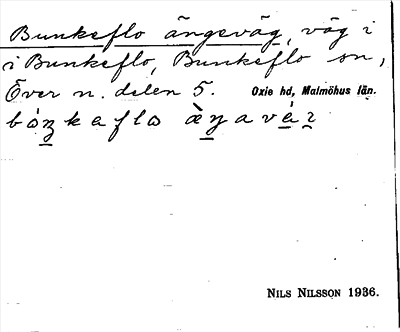 Bunkeflo ängeväg, väg i
i Bunkeflo, Bunkeflo sn,
Över n. delen 5. Oxie hd, Malmöhus län.
NILS NILSSON 1936.